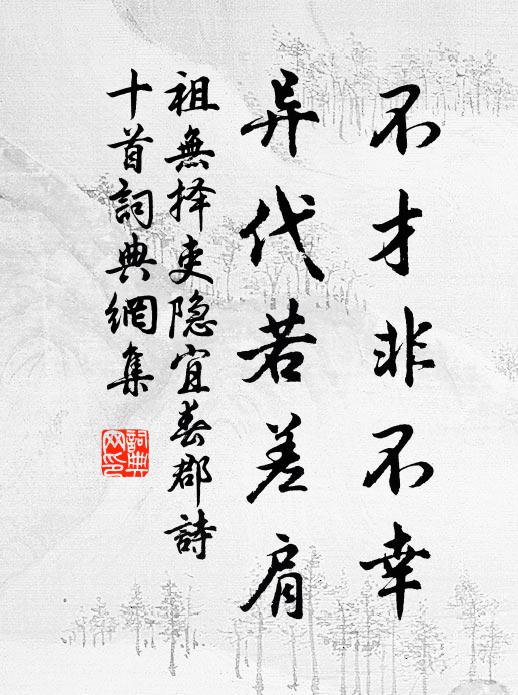 不才非不幸
异代若差肩
祖無择吏隐宜春郡詩
十首詞典網集
詞典網印